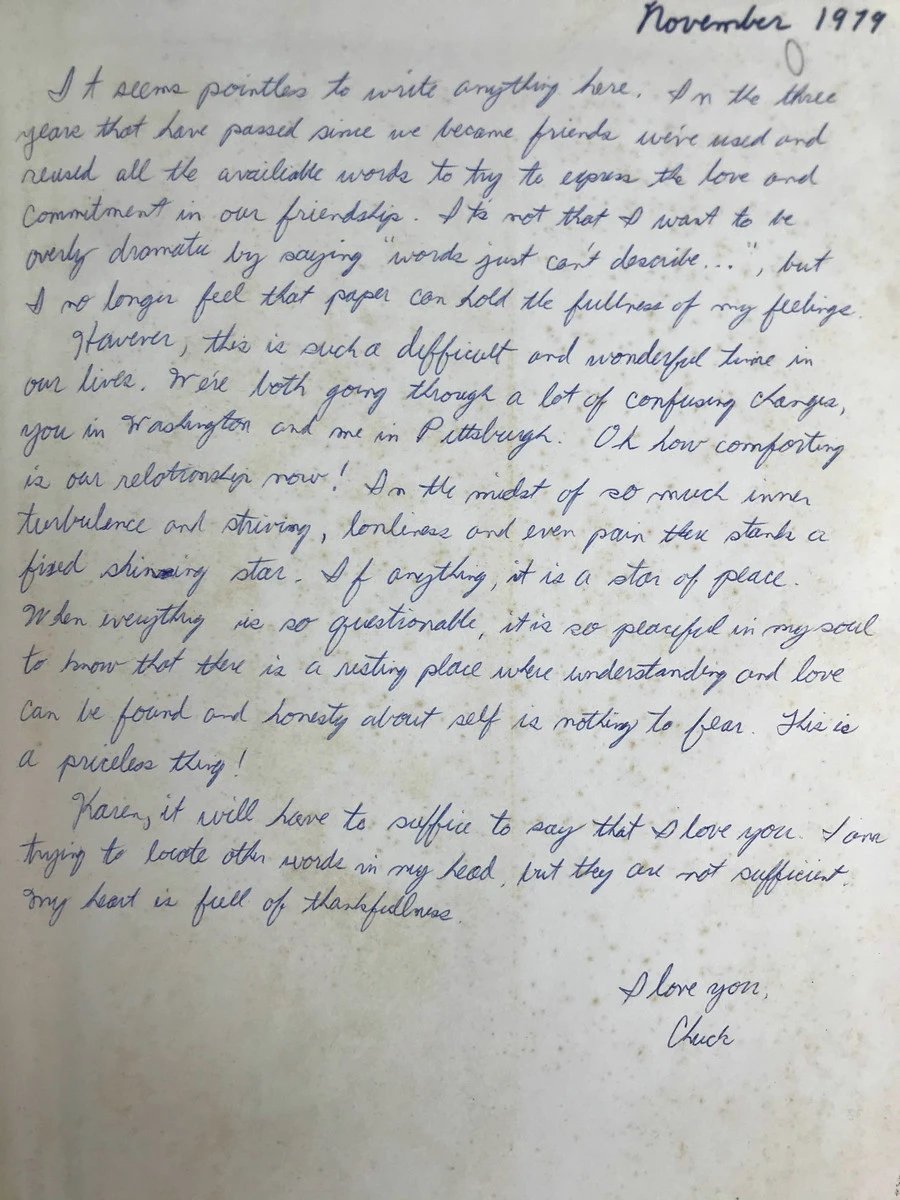 November 1979
It seems pointless to write anything here. In the three
years that have passed since we became friends we've used and
reused all the availiable words to try to express the love and
commitment in our friendship. It's not that I want to be
overly dramatic by saying "words just can't describe...", but
I no longer feel that paper can hold the fullness of my feelings.
However, this is such a difficult and wonderful time in
our lives. We're both going through a lot of confusing changes,
you in Washington and me in Pittsburgh. Oh how comforting
is our relationship now! In the midst of so much inner
turbulence and striving, lonliness and even pain there stands a
fixed shining star. If anything, it is a star of peace.
When everything is so questionable, it is so peaceful in my soul
to know that there is a resting place where understanding and love
can be found and honesty about self is nothing to fear. This is
a priceless thing!
Karen, it will have to suffice to say that I love you. I am
trying to locate other words in my head, but they are not sufficient.
My heart is full of thankfullness.
I love you,
Chuck